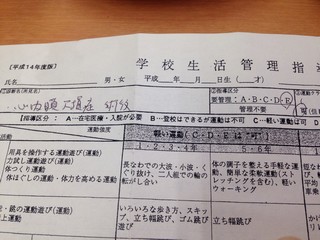 〔平成14年度版〕
学校生活管理指
氏名 男・女 平成 年 月 日生( )才
①診断名(所見名)
②指導区分
要管理：A・B・C・D・E
管理不要
③運動クラ
【指導区分：A…在宅医療・入院が必要 B…登校はできるが運動は不可 C…軽い運動は可 D
運動強度
軽い運動（C・D・Eは"可"）
1・2・3・4年
5・6年
用具を操作する運動遊び(運動)
力試し運動遊び(運動)
体つくり運動
体ほぐしの運動・体力を高める運動
長なわでの大波・小波・くぐり抜け、二人組での輪の転がし合い
体の調子を整える手軽な運動、簡単な柔軟運動(ストレッチングを含む)、軽いウォーキング
いろいろな歩き方、スキップ、立ち幅跳び、ゴム跳び遊び
立ち幅跳び